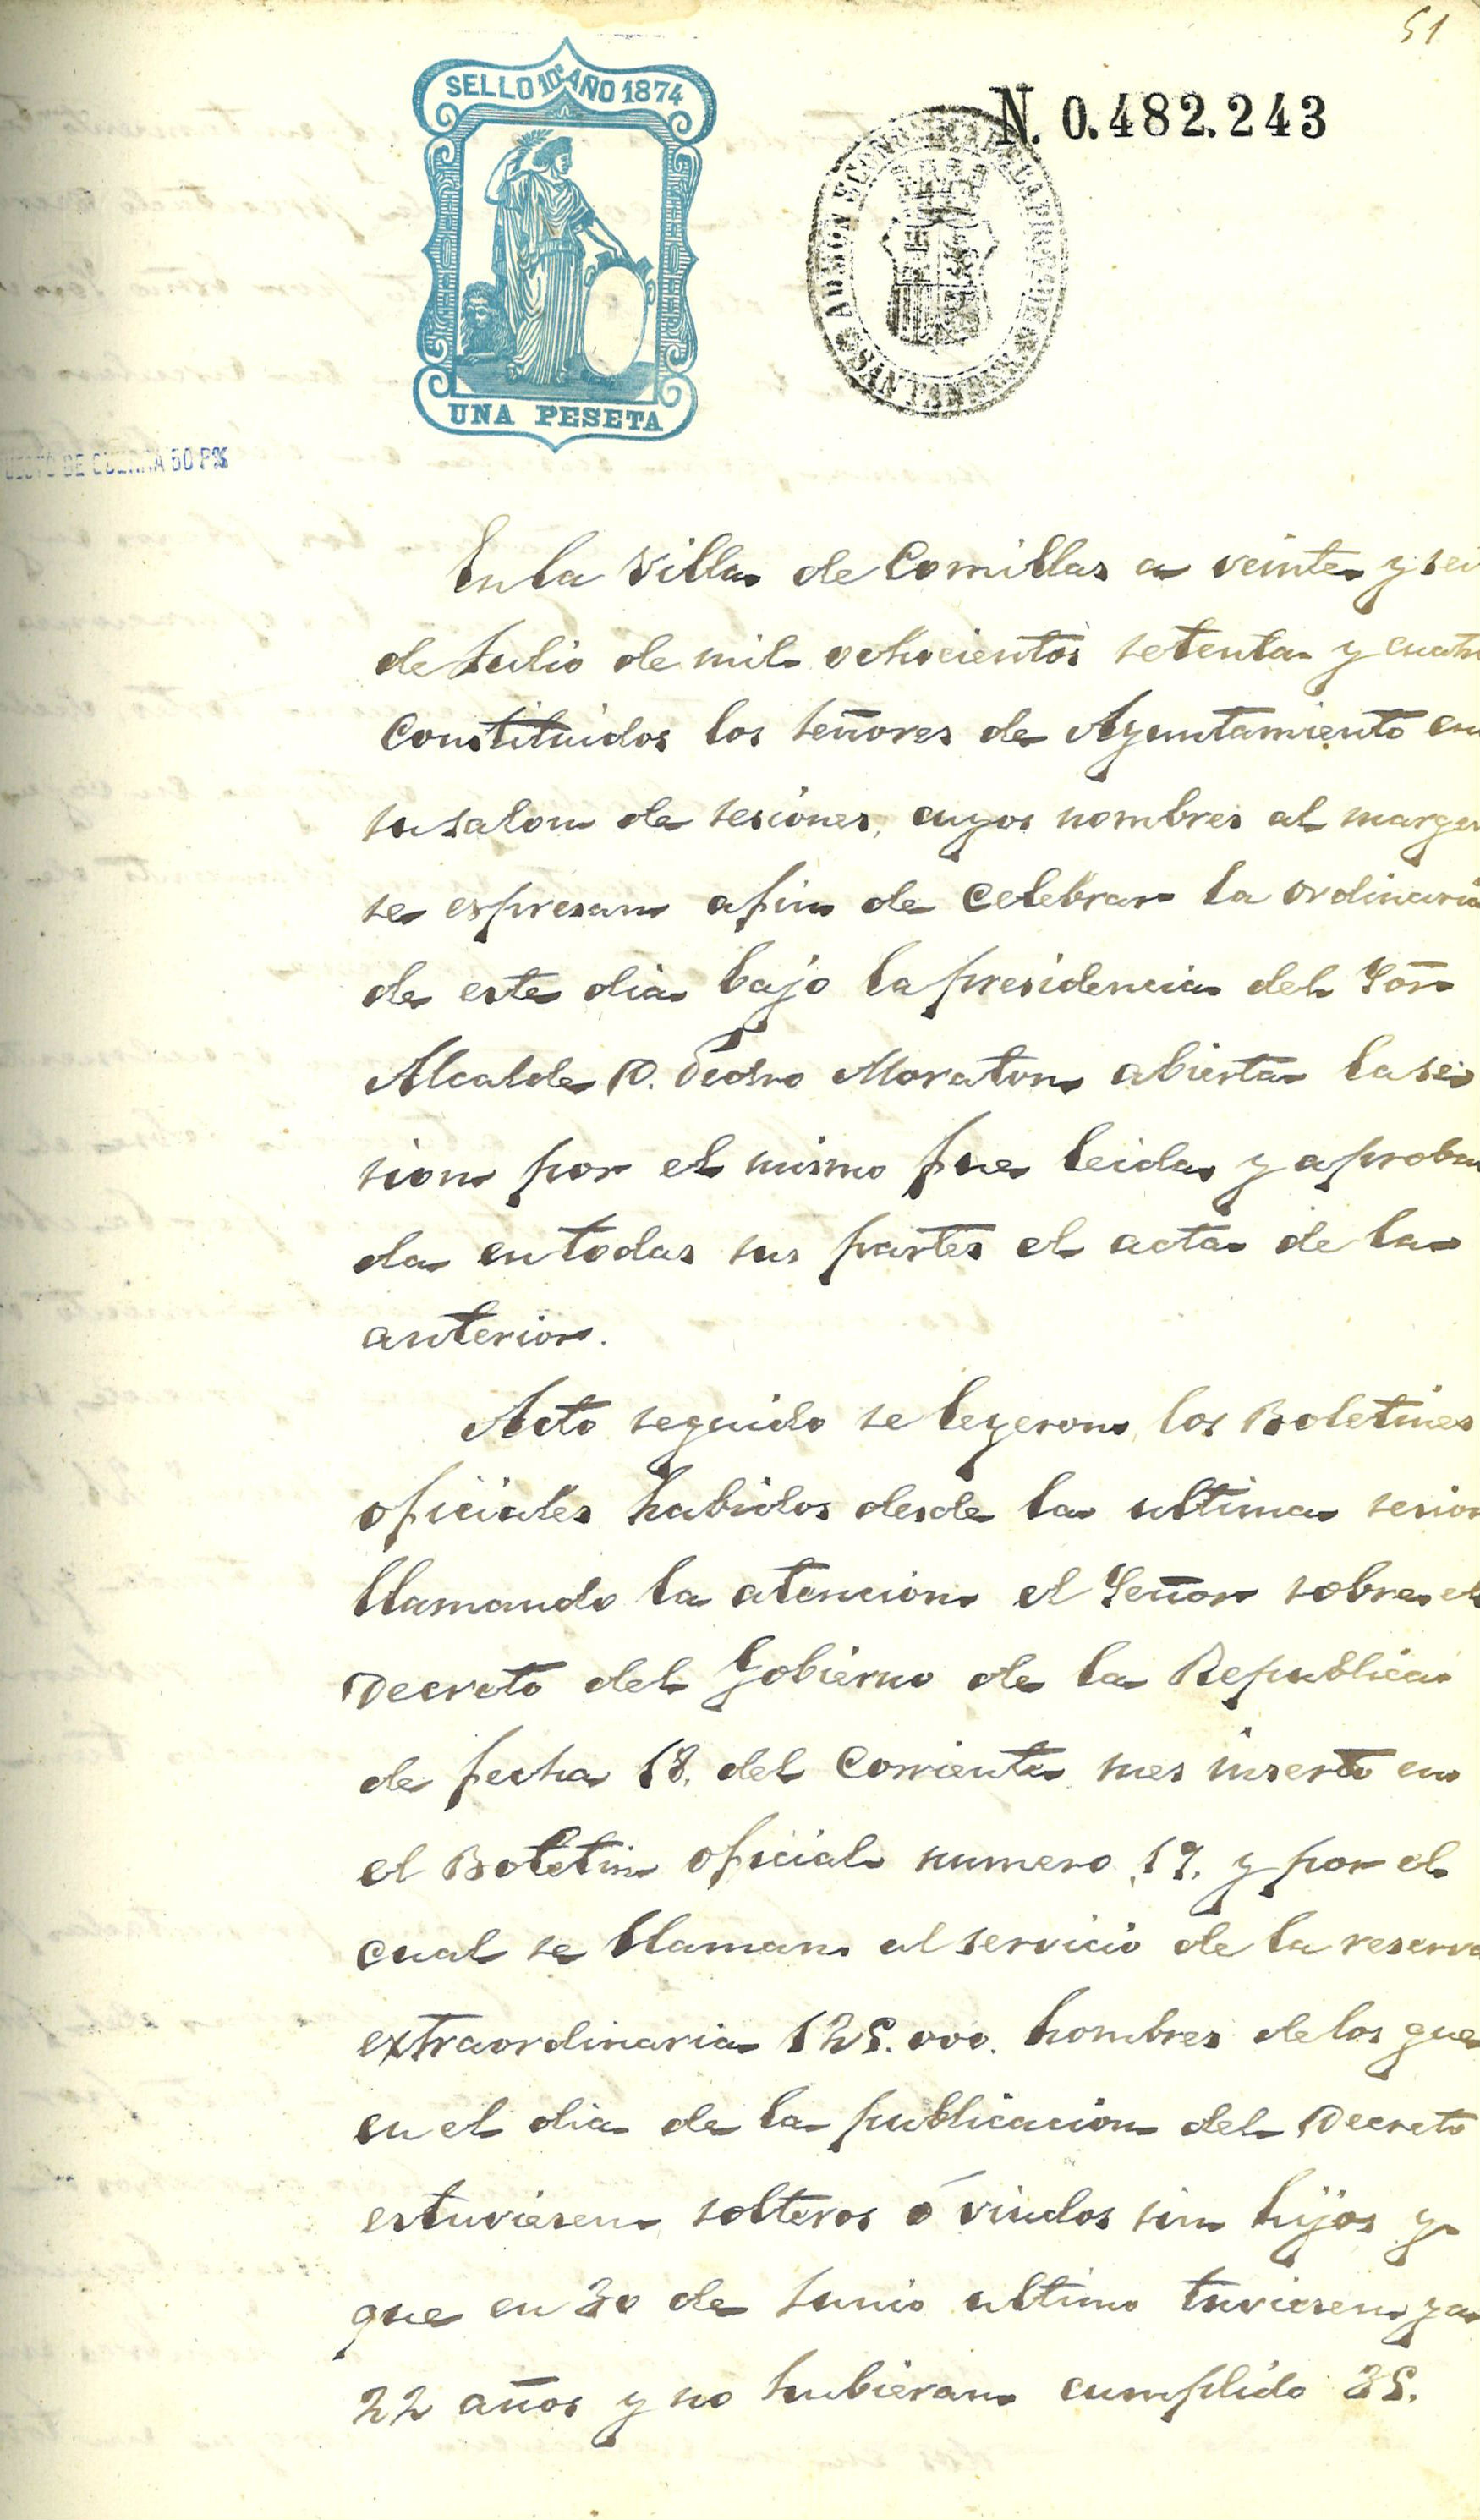 51
SELLO 10º AÑO 1874
N. 0.482.243
UNA PESETA
DE GUERRA 50 P%
En la Villa de Comillas a veinte y sei
de Julio de mil ochocientos setenta y cuatro
Constituidos los Señores de Ayuntamiento en
su salon de sesiones, cuyos nombres al margen
se espresan afin de celebrar la ordinaria
de este dia bajo la presidencia del Sor
Alcalde D. Pedro Moraton abierta la se
sion por el mismo fue leida y aproba
da en todas sus partes el acta de la
anterior.
Acto seguido se leyeron los Boletines
oficiales habidos desde la ultima sesion
llamando la atencion el Señor sobre el
Decreto del Gobierno de la Republica
de fecha 18. del Corriente mes inserto en
el Boletin oficial numero 19. y por el
cual se llaman al servicio de la reserva
extraordinaria 125.000. hombres de los que
en el dia de la publicacion del Decreto
estuviesen solteros ó viudos sin hijos y
que en 30 de Junio ultimo tuviesen ya
22 años y no hubieran cumplido 35.